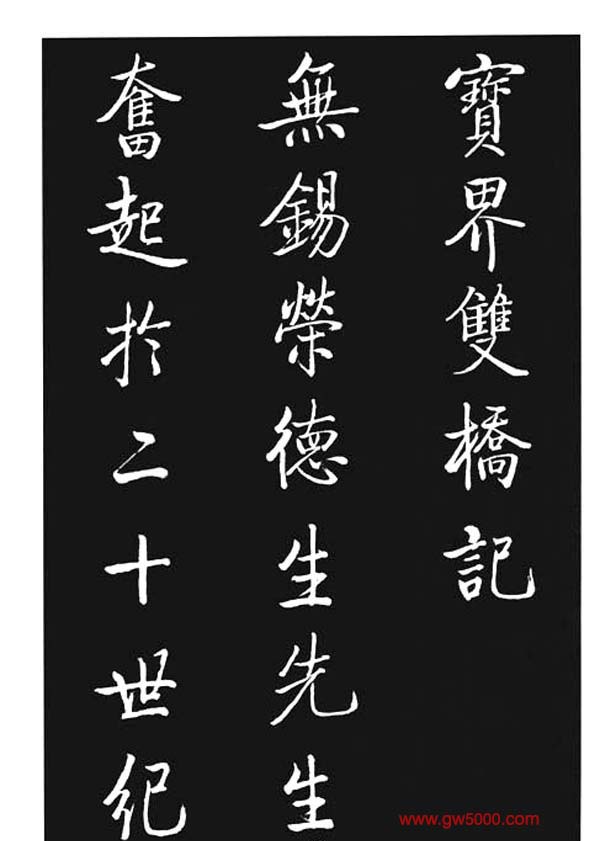 寶界雙橋記
無錫榮德生先生
奮起於二十世紀
www.gw5000.com